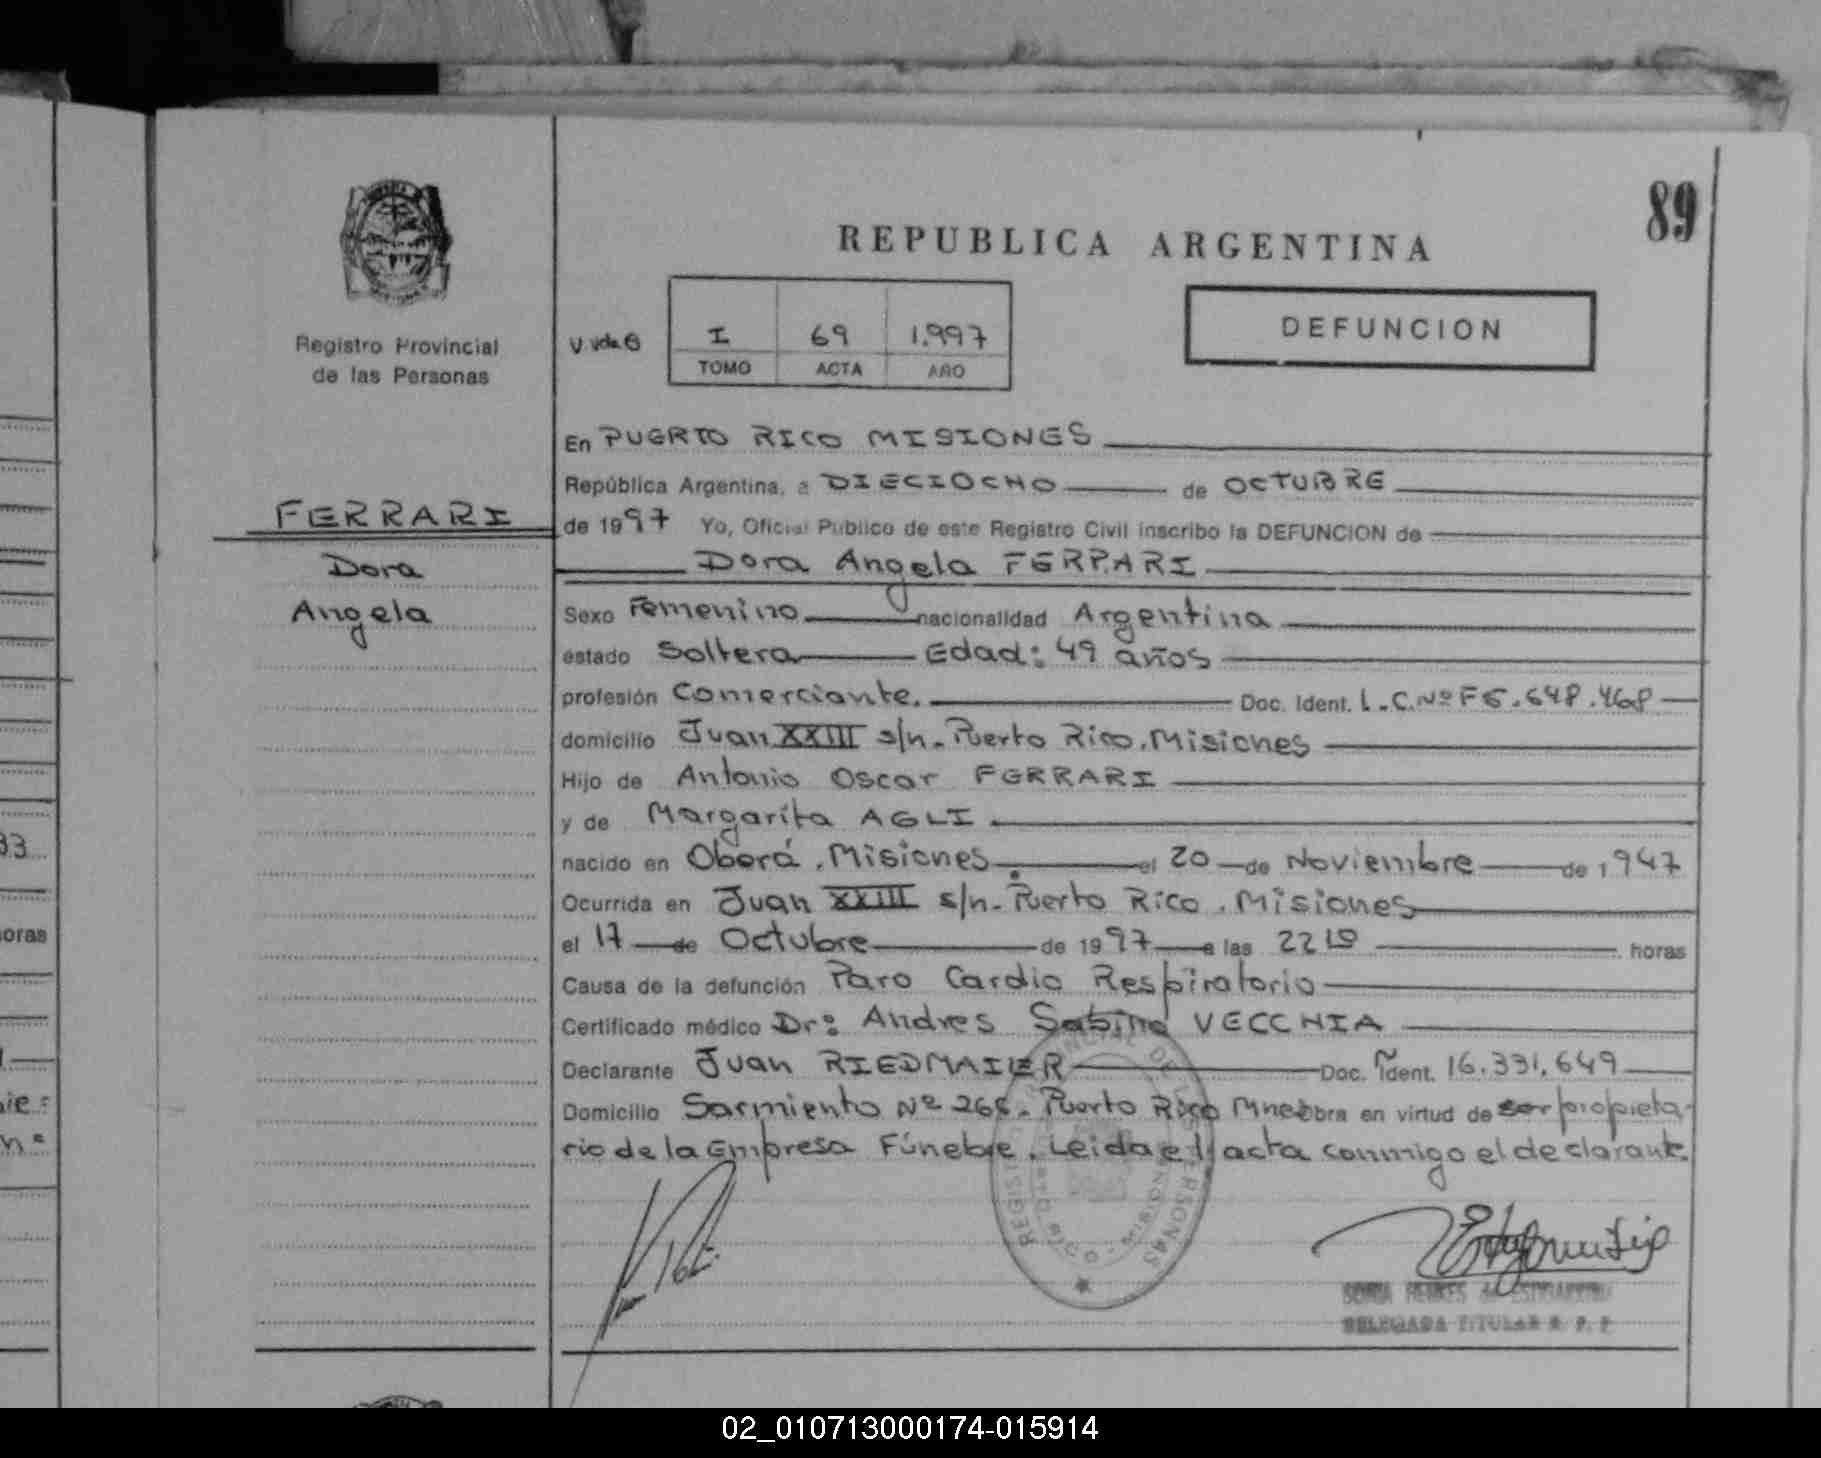 89
REPUBLICA ARGENTINA
Registro Provincial
de las Personas
I 69 1.997
TOMO ACTA AÑO
DEFUNCION
En PUERTO RICO MISIONES
República Argentina, a DIECIOCHO de OCTUBRE
FERRARI
Dora
Angela
de 1997 Yo, Oficial Publico de este Registro Civil inscribo la DEFUNCION de
Dora Angela FERRARI
Sexo Femenino nacionalidad Argentina
estado Soltera Edad: 49 años
profesión Comerciante. Doc. Ident. L.C.Nº F5.648.468
domicilio Juan XXIII s/n. Puerto Rico. Misiones
Hijo de Antonio Oscar FERRARI
y de Margarita AGLI.
nacido en Oberá. Misiones. el 20 de Noviembre de 1947
Ocurrida en Juan XXIII s/n. Puerto Rico. Misiones
el 17 de Octubre de 1997 a las 22 horas
Causa de la defunción Paro Cardio Respiratorio
Certificado médico Dr: Andres Sabino VECCHIA
Declarante Juan RIEDMAIER Doc. Ident. 16.331.649
Domicilio Sarmiento Nº Puerto Rico Mnes obra en virtud de ser propieta-
rio de la Empresa Fúnebre. Leida el acta conmigo el declarante.
REGISTRO PROVINCIAL DE LAS PERSONAS
PUERTO RICO MISIONES
DELEGADA TITULAR R. P. P.
33
horas
02_010713000174-015914